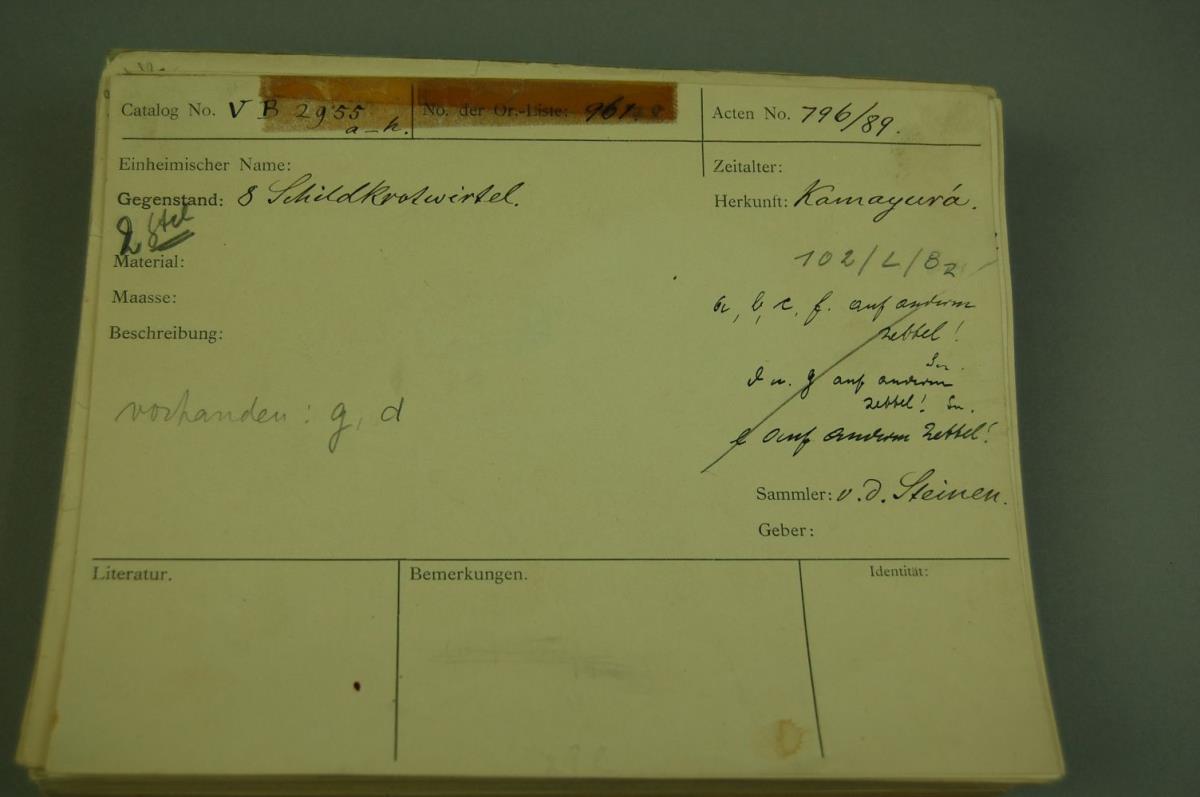 Catalog No. V B 2955 a-h. No. der Or.-Liste: 961 Acten No. 796/89.
Einheimischer Name: Zeitalter:
Gegenstand: 8 Schildkrotwirtel. Herkunft: Kamayurá.
2
Material: 102/L/82
Maasse: a, b, c, f. auf anderm
Zettel!
Beschreibung:
d u. g auf anderm
Zettel! Sn.
vorhanden: g, d
e auf anderm Zettel!
Sammler: v. d. Steinen.
Geber:
Literatur. Bemerkungen. Identität: